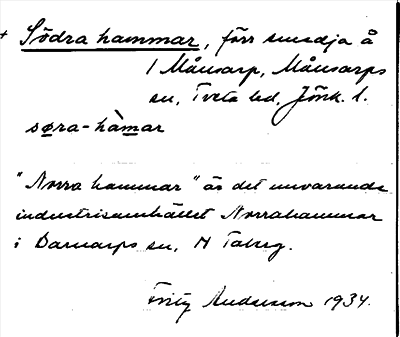 + Södra hammar, förr smedja å
1 Månsarp, Månsarps
sn, Tveta hd, Jönk. l.
søra-hàmar
"Norra hammar" är det nuvarande
industrisamhället Norrahammar
i Barnarps sn, N Taberg.
Fritz Andersson 1934.